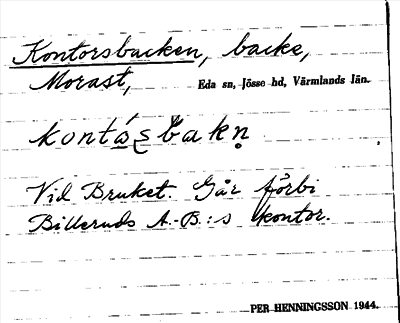 Kontorsbacken, backe,
Morast, Eda sn, Jösse hd, Värmlands län.
kontási̯bakn̥
Vid Bruket. Går förbi
Billeruds A.-B.:s kontor.
PER HENNINGSSON 1944.